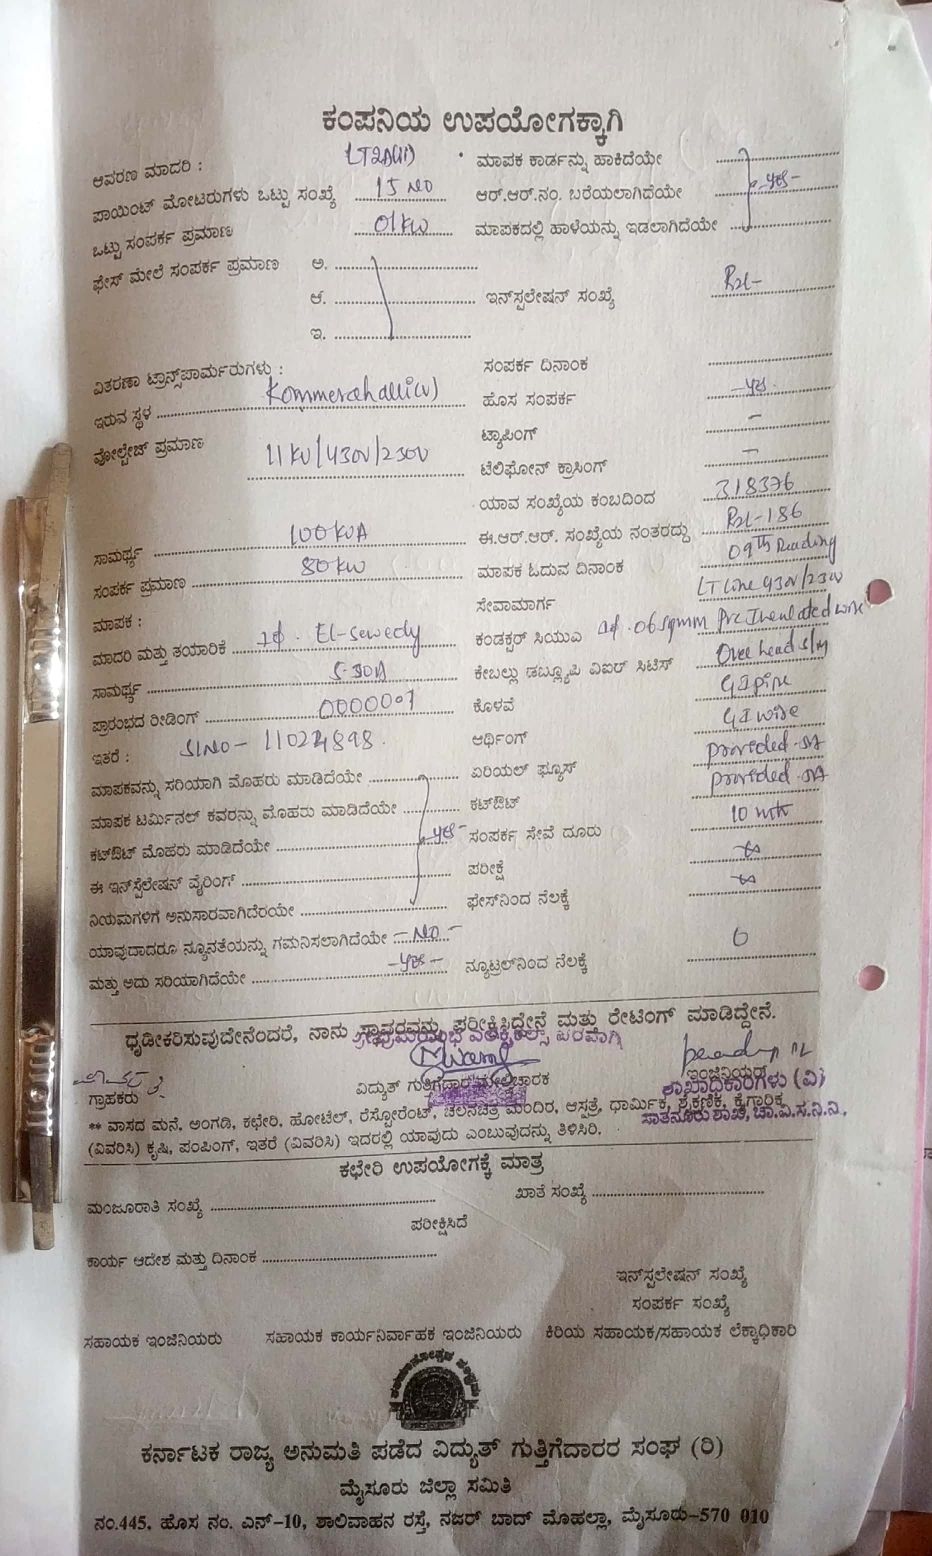 ಕಂಪನಿಯ ಉಪಯೋಗಕ್ಕಾಗಿ
ಆವರಣ ಮಾದರಿ : LT2A(ii) ಮಾಪಕ ಕಾರ್ಡನ್ನು ಹಾಕಿದೆಯೇ
ಪಾಯಿಂಟ್ ಮೋಟರುಗಳು ಒಟ್ಟು ಸಂಖ್ಯೆ 15 NO ಆರ್.ಆರ್.ನಂ. ಬರೆಯಲಾಗಿದೆಯೇ -yes-
ಒಟ್ಟು ಸಂಪರ್ಕ ಪ್ರಮಾಣ 01KW ಮಾಪಕದಲ್ಲಿ ಹಾಳೆಯನ್ನು ಇಡಲಾಗಿದೆಯೇ
ಫೇಸ್ ಮೇಲೆ ಸಂಪರ್ಕ ಪ್ರಮಾಣ ಅ.
ಆ. ಇನ್‌ಸ್ಪಲೇಷನ್ ಸಂಖ್ಯೆ
ಇ.
ವಿತರಣಾ ಟ್ರಾನ್ಸ್‌ಪಾರ್ಮರುಗಳು : ಸಂಪರ್ಕ ದಿನಾಂಕ
ಇರುವ ಸ್ಥಳ ಹೊಸ ಸಂಪರ್ಕ -yes-
ವೋಲ್ಟೇಜ್ ಪ್ರಮಾಣ 11KV/430V/230V ಟ್ಯಾಪಿಂಗ್ -
ಟೆಲಿಫೋನ್ ಕ್ರಾಸಿಂಗ್ -
ಯಾವ ಸಂಖ್ಯೆಯ ಕಂಬದಿಂದ 318376
ಸಾಮರ್ಥ್ಯ 100KVA ಈ.ಆರ್.ಆರ್. ಸಂಖ್ಯೆಯ ನಂತರದ್ದು
ಸಂಪರ್ಕ ಪ್ರಮಾಣ 80KW ಮಾಪಕ ಓದುವ ದಿನಾಂಕ 09th Reading
ಮಾಪಕ : ಸೇವಾಮಾರ್ಗ LT line 430V/230V
ಮಾದರಿ ಮತ್ತು ತಯಾರಿಕೆ 1φ. El-sewedy ಕಂಡಕ್ಟರ್ ಸಿಯುಎ 1φ.06 sqmm PVC Insulated wire
ಸಾಮರ್ಥ್ಯ 5-30A ಕೇಬಲ್ಲು ಡಬ್ಲ್ಯೂಪಿ ವಿಐಆರ್ ಸಿಟಿಸ್ Over head
ಪ್ರಾರಂಭದ ರೀಡಿಂಗ್ 0000007 ಕೊಳವೆ GI pipe
ಇತರೆ : SlNO- 11024898. ಆರ್ಥಿಂಗ್ GI wire
ಮಾಪಕವನ್ನು ಸರಿಯಾಗಿ ಮೊಹರು ಮಾಡಿದೆಯೇ ಏರಿಯಲ್ ಫ್ಯೂಸ್ provided
ಮಾಪಕ ಟರ್ಮಿನಲ್ ಕವರನ್ನು ಮೊಹರು ಮಾಡಿದೆಯೇ ಕಟ್‌ಔಟ್ provided
ಕಟ್‌ಔಟ್ ಮೊಹರು ಮಾಡಿದೆಯೇ -yes- ಸಂಪರ್ಕ ಸೇವೆ ದೂರು 10 mtr
ಈ ಇನ್‌ಸ್ಪೆಲೇಷನ್ ವೈರಿಂಗ್ ಪರೀಕ್ಷೆ ∞
ನಿಯಮಗಳಿಗೆ ಅನುಸಾರವಾಗಿದೆರಯೇ ಫೇಸ್‌ನಿಂದ ನೆಲಕ್ಕೆ ∞
ಯಾವುದಾದರೂ ನ್ಯೂನತೆಯನ್ನು ಗಮನಿಸಲಾಗಿದೆಯೇ -NO-
ಮತ್ತು ಅದು ಸರಿಯಾಗಿದೆಯೇ -yes- ನ್ಯೂಟ್ರಲ್‌ನಿಂದ ನೆಲಕ್ಕೆ 0
ಧೃಡೀಕರಿಸುವುದೇನೆಂದರೆ, ನಾನು ಸ್ಥಾವರವನ್ನು ಪರೀಕ್ಷಿಸಿದ್ದೇನೆ ಮತ್ತು ರೇಟಿಂಗ್ ಮಾಡಿದ್ದೇನೆ.
ಗ್ರಾಹಕರು ವಿದ್ಯುತ್ ಗುತ್ತಿಗೆದಾರ/ಮೇಲ್ವಿಚಾರಕ ಇಂಜಿನಿಯರ್
ಶಾಖಾಧಿಕಾರಿಗಳು (ವಿ)
ಸಾತನೂರು ಶಾಖೆ, ಚಾ.ವಿ.ಸ.ನಿ.ನಿ.,
** ವಾಸದ ಮನೆ, ಅಂಗಡಿ, ಕಛೇರಿ, ಹೋಟೆಲ್, ರೆಸ್ಟೋರೆಂಟ್, ಚಲನಚಿತ್ರ ಮಂದಿರ, ಆಸ್ಪತ್ರೆ, ಧಾರ್ಮಿಕ, ಶೈಕ್ಷಣಿಕ, ಕೈಗಾರಿಕ
(ವಿವರಿಸಿ) ಕೃಷಿ, ಪಂಪಿಂಗ್, ಇತರೆ (ವಿವರಿಸಿ) ಇದರಲ್ಲಿ ಯಾವುದು ಎಂಬುವುದನ್ನು ತಿಳಿಸಿರಿ.
ಕಛೇರಿ ಉಪಯೋಗಕ್ಕೆ ಮಾತ್ರ
ಮಂಜೂರಾತಿ ಸಂಖ್ಯೆ ಖಾತೆ ಸಂಖ್ಯೆ
ಪರೀಕ್ಷಿಸಿದೆ
ಕಾರ್ಯ ಆದೇಶ ಮತ್ತು ದಿನಾಂಕ
ಇನ್‌ಸ್ಪಲೇಷನ್ ಸಂಖ್ಯೆ
ಸಂಪರ್ಕ ಸಂಖ್ಯೆ
ಸಹಾಯಕ ಇಂಜಿನಿಯರು ಸಹಾಯಕ ಕಾರ್ಯನಿರ್ವಾಹಕ ಇಂಜಿನಿಯರು ಕಿರಿಯ ಸಹಾಯಕ/ಸಹಾಯಕ ಲೆಕ್ಕಾಧಿಕಾರಿ
ಕರ್ನಾಟಕ ರಾಜ್ಯ ಅನುಮತಿ ಪಡೆದ ವಿದ್ಯುತ್ ಗುತ್ತಿಗೆದಾರರ ಸಂಘ (ರಿ)
ಮೈಸೂರು ಜಿಲ್ಲಾ ಸಮಿತಿ
ನಂ.445, ಹೊಸ ನಂ. ಎನ್-10, ಶಾಲಿವಾಹನ ರಸ್ತೆ, ನಜರ್ ಬಾದ್ ಮೊಹಲ್ಲಾ, ಮೈಸೂರು-570 010